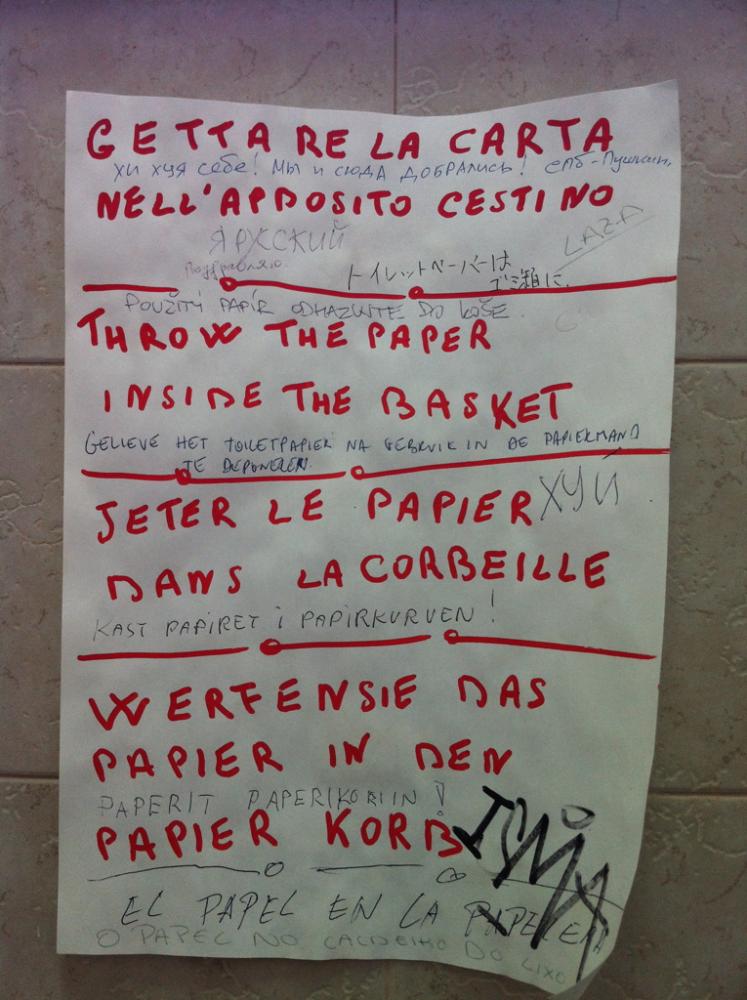 GETTARE LA CARTA
ХИ ХУЯ СЕБЕ! МЫ И СЮДА ДОБРАЛИСЬ! СПб-Пушкин,
NELL'APPOSITO CESTINO
Я РУССКИЙ
LAZA
Поздравляю
トイレットペーパーは
ゴミ箱に
POUŽITÝ PAPÍR ODHAZUJTE DO KOŠE
THROW THE PAPER
INSIDE THE BASKET
GELIEVE HET TOILETPAPIER NA GEBRUIK IN DE PAPIERMAND
TE DEPONEREN.
JETER LE PAPIER ХУЙ
DANS LA CORBEILLE
KAST PAPIRET I PAPIRKURVEN!
WERFEN SIE DAS
PAPIER IN DEN
PAPERIT PAPERIKORIIN!
PAPIER KORB
EL PAPEL EN LA PAPELERA
O PAPEL NO CALDEIRO DO LIXO